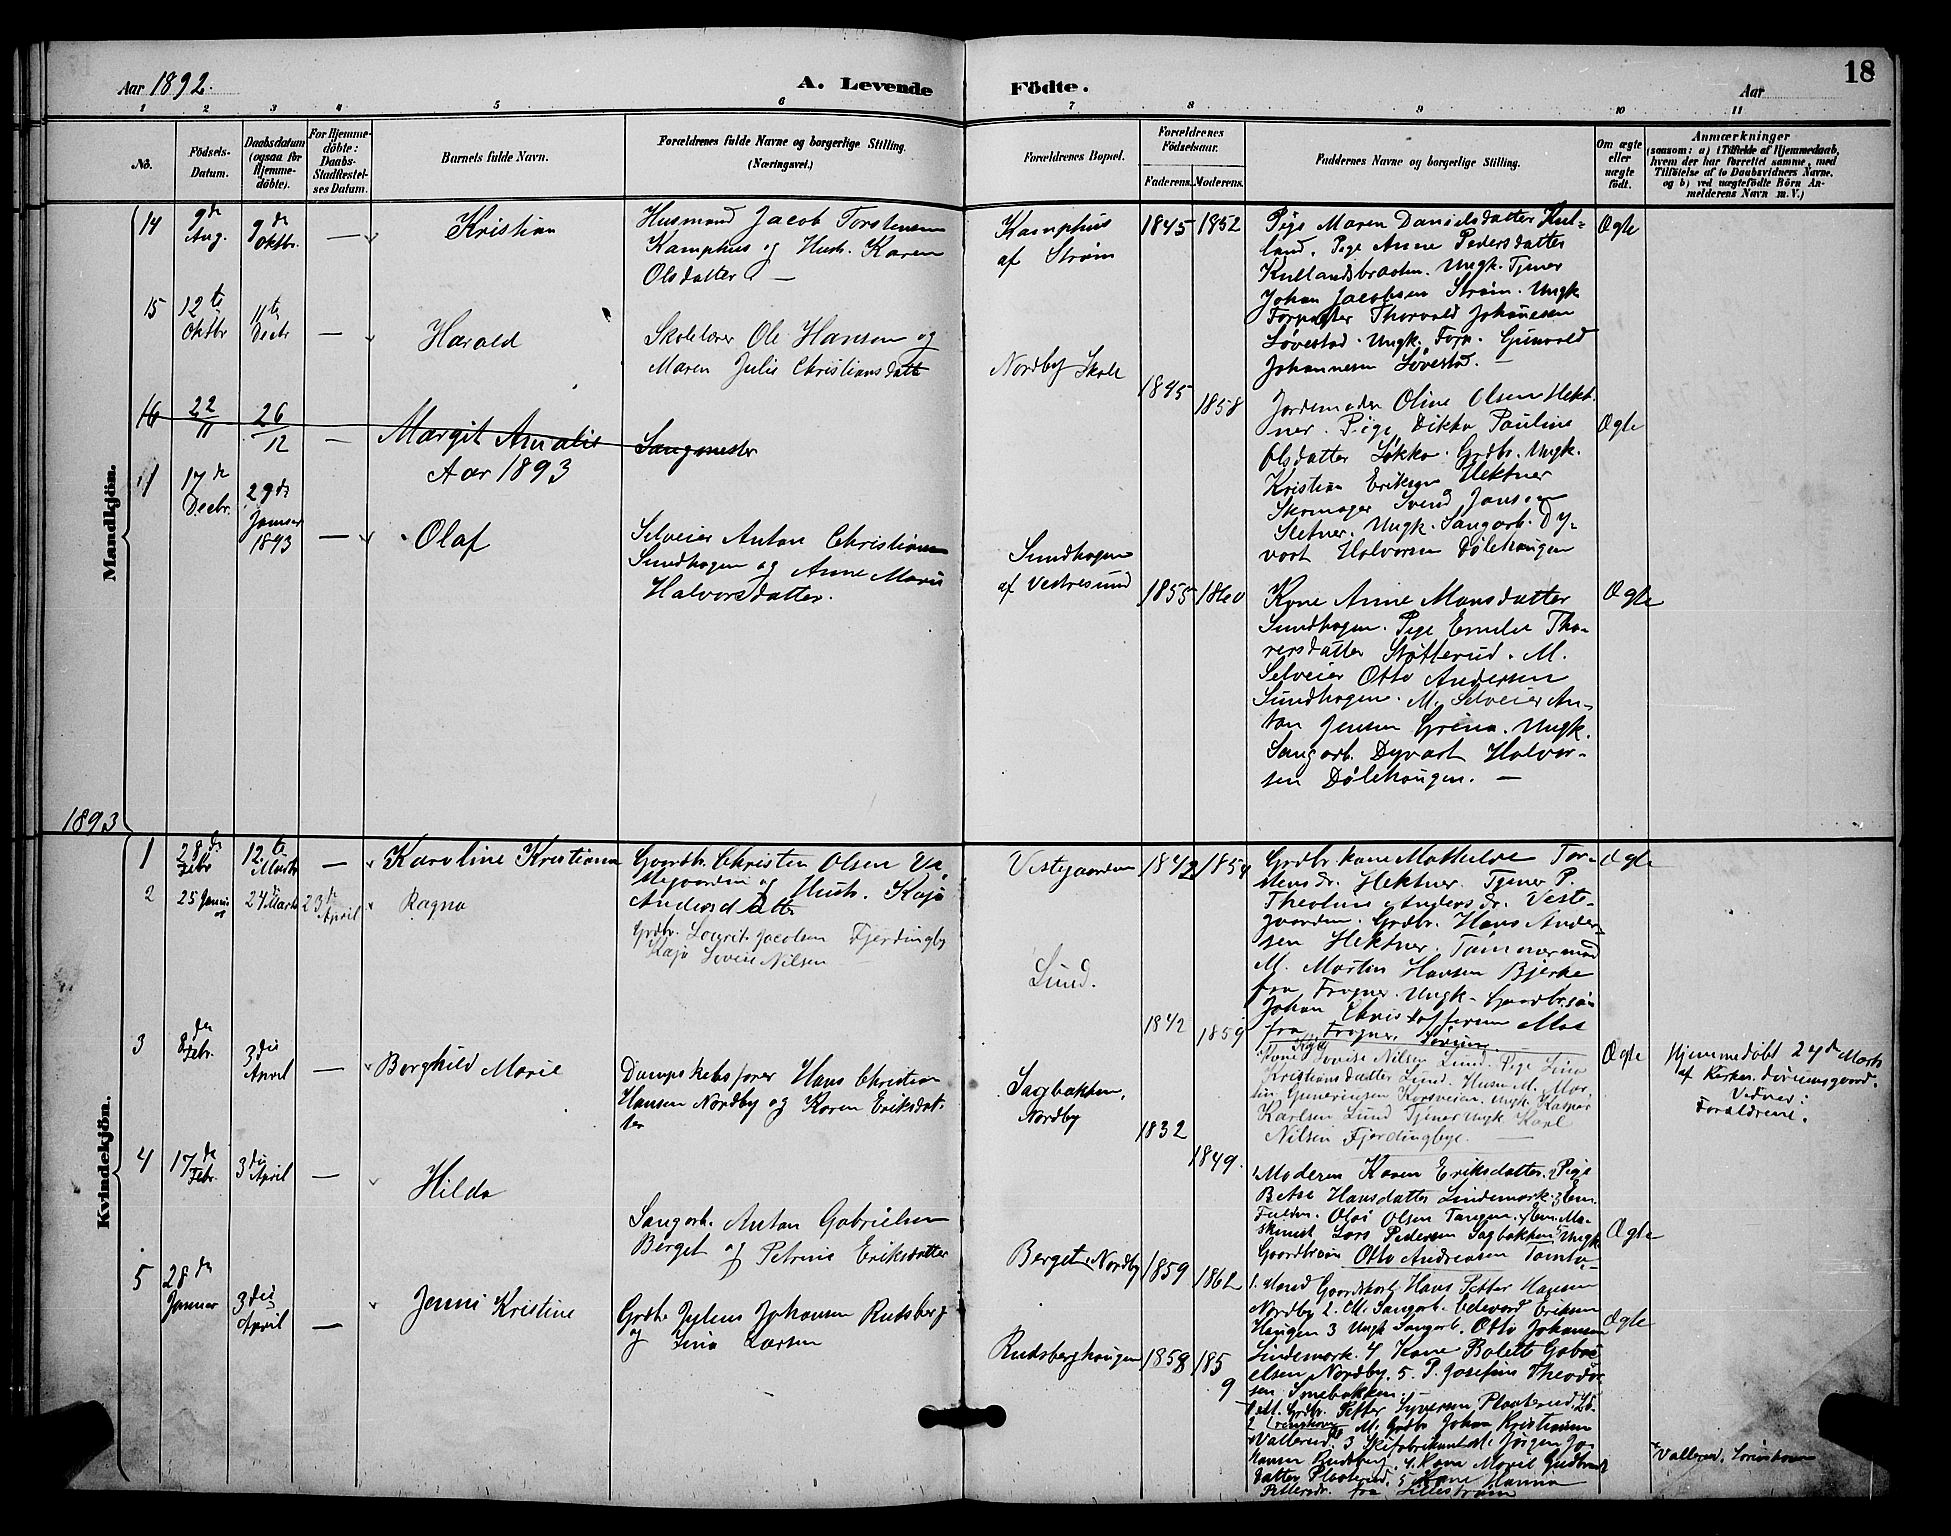 18
Aar 1892.
A. Levende Födte.
Aar
1 2 3 4 5 6 7 8 9 10 11
No.
Födsels-Datum.
Daabsdatum (ogsaa for Hjemme-döbte).
For Hjemme-döbte: Daabs-Stadfæstel-ses Datum.
Barnets fulde Navn.
Forældrenes fulde Navne og borgerlige Stilling.
(Næringsvei.)
Forældrenes Bopæl.
Forældrenes Födselsaar.
Faderens. Moderens.
Faddernes Navne og borgerlige Stilling.
Om ægte eller uægte födt.
Anmærkninger
(saasom: a) i Tilfælde af Hjemmedaab,
hvem der har forrettet samme, med
Tilföielse af to Daabsvidners Navne,
og b) ved uægtefödte Börn An-
melderens Navn m. V.)
Mandkjön.
14 9de Aug. 9de Oktbr. — Kristian
Husmand Jacob Torstensen
Kamphus og Hustr. Karen
Olsdatter —
Kamphus
af Strøm
1845 1852
Pige Maren Danielsdatter Kul-
land. Pige Anne Pedersdatter
Kullandsbraaten. Ungk. Tjener
Johan Jacobsen Strøm. Ungk.
Forpagter Thorvald Johannesen
Løvestad. Ungk. Forp. Gunvald
Johannesen Løvestad. —
Ægte
15 12te Oktbr 11te Decbr — Harald
Skolelærer Ole Hansen og
Maren Julie Christiansdatt
Nordby Skole
1845 1858
Jordemoder Oline Olsen Hekt-
ner. Pige Dikka Pauline
Olsdatter Løkka. Grdbr. Ungk.
Kristian Eriksen Hektner
Skomager Svend Jansen
Sletner. Ungk. Sangarb. Dy-
vart Halvorsen Dølehaugen
Ægte
16 22/11 26/12 — Margit Amalie
Sangmester
Aar 1893
17de Decbr. 29de Januar 1893 — Olaf
Selveier Anton Christiansen
Sundhagen og Anne Marie
Halvorsdatter.
Sundhagen
af Vestresund
1855 1860
Kone Anne Mansdatter
Sundhagen. Pige Emelie Tho-
rersdatter Støtterud. M.
Selveier Otto Andersen
Sundhagen. M. Selveier An-
ton Jensen Grena. Ungk.
Sangarb. Dyvart Halvor-
sen Dølehaugen. —
Ægte
1893
Kvindekjön.
1 28de Febr 12te Marts — Karoline Kristiane
Gaardbr. Christen Olsen Ve-
stegaarden og Hustr. Kaja
Andersdatter
Vestegaarden
1842 1854
Grdbr. kone Mathilde Tor-
stensdr. Hektner. Tjener P.
Theoline Andersdr. Veste-
gaarden. Grdbr. Hans Ander-
sen Hektner. Tømmermand
M. Martin Hansen Bjerke
fra Frogner. Ungk. Gaardbr.søn
Johan Christoffersen Moe
fra Frogner, Sørum.
Ægte
2 25 Januar 24de Marts 23de April Ragna
Grdbr. Lourit Jacobsen Fjerdingby
Kaja Lovise Nilsen —
Lund.
1842 1859
Kone Kaja Lovise Nilsen Lund. Pige Lina
Kristiansdatter Lund. Husm. M. Mar-
tin Gunerius Korsveien. Ungk. Kaspar
Karlsen Lund. Tjener Ungk. Karl
Nilsen Fjerdingbye. —
Ægte
Hjemmedøbt 24de Marts
af Kirkes. Sørumsgaard.
Vidner:
Forældrene.
3 8de Febr. 3die April — Borghild Marie
Dampskibsfører Hans Christian
Hansen Nordby og Karen Eriksdat-
ter
Sagbakken,
Nordby
1832 1849.
1 Moderen Karen Eriksdatter. 2 Pige
Betsa Hansdatter Lindemark. 3 Em.
Fuldm. Olai Olsen Tangen. 4 Em. Ma-
skinist Lars Pedersen Sagbakken. 5 Ungk
Gaardbrsøn Otto Andreasen Tomta.
Ægte
4 17de Febr. 3die April — Hilda
Sangarb. Anton Gabrielsen
Berget og Petrine Eriksdatter
Berget, Nordby
1859 1862
1. Mand Gaardskarl Hans Petter Hansen
Nordby 2. M. Sangarb. Edevard Eriksen
Haugen 3 Ungk Sangarb. Otto Johansen
Lindemark. 4 Kone Bolette Gabri-
elsen Nordby. 5 P. Josefine Theodor-
sen Sonebakken.
Ægte
5 28de Januar 3die April — Jenni Kristine
Grdbr. Julius Johansen Rudsberg
og Lina Larsen
Rudsberghaugen
1858 1859
1 M. Grdbr. Petter Syversen Plaaterud
2 M. Grdbr Johan Kristiansen
Vallerud. 3 Skifabrikant M. Jørgen Jo-
hansen Rudsberg. 4. Kone Maril Gudbrands
datter Plaaterud. 5 Kone Hanna
Pettersdr. fra Lillestrøm
Vallerud,